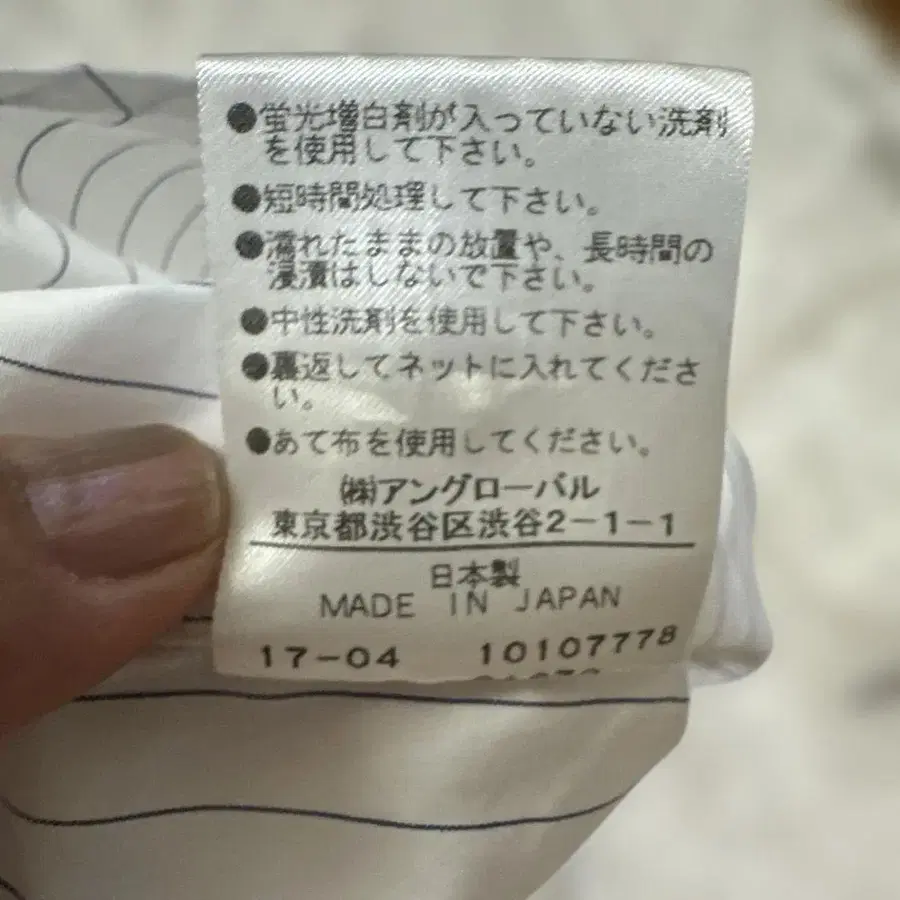 ●蛍光増白剤が入っていない洗剤
を使用して下さい。
●短時間処理して下さい。
●濡れたままの放置や、長時間の
浸漬はしないで下さい。
●中性洗剤を使用して下さい。
●裏返してネットに入れてくださ
い。
●あて布を使用してください。
㈱アングローバル
東京都渋谷区渋谷2-1-1
日本製
MADE IN JAPAN
17-04 10107778